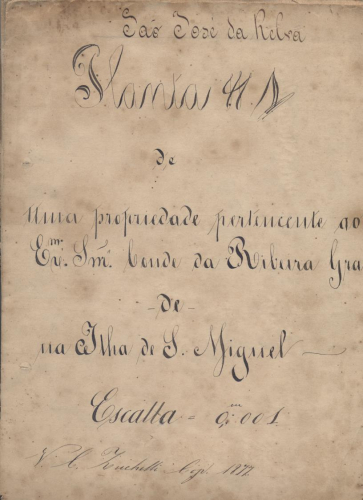 São José da Relva
Planta
de
uma propriedade pertencente ao
Exmº. Snr. Conde da Ribeira Gran
-de-
na Ilha de S. Miguel
Escalla = 0,m001
1877